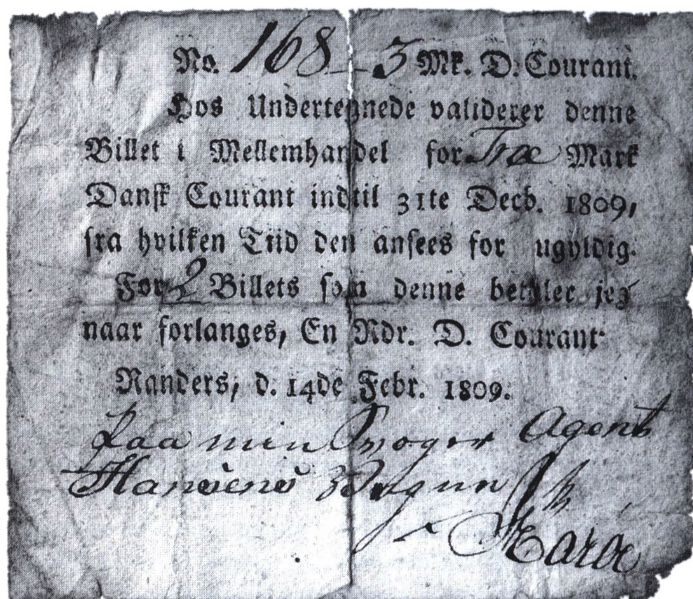 No. 168 – 3 Mk. D. Courant.
Hos Undertegnede validerer denne
Billet i Mellemhandel for Træ Mark
Dansk Courant indtil 31te Decb. 1809,
fra hvilken Tiid den ansees for ugyldig.
For 2 Billets som denne betaler jeg
naar forlanges, En Rdr. D. Courant
Randers, d. 14de Febr. 1809.
paa min Svoger Agent
Hansens